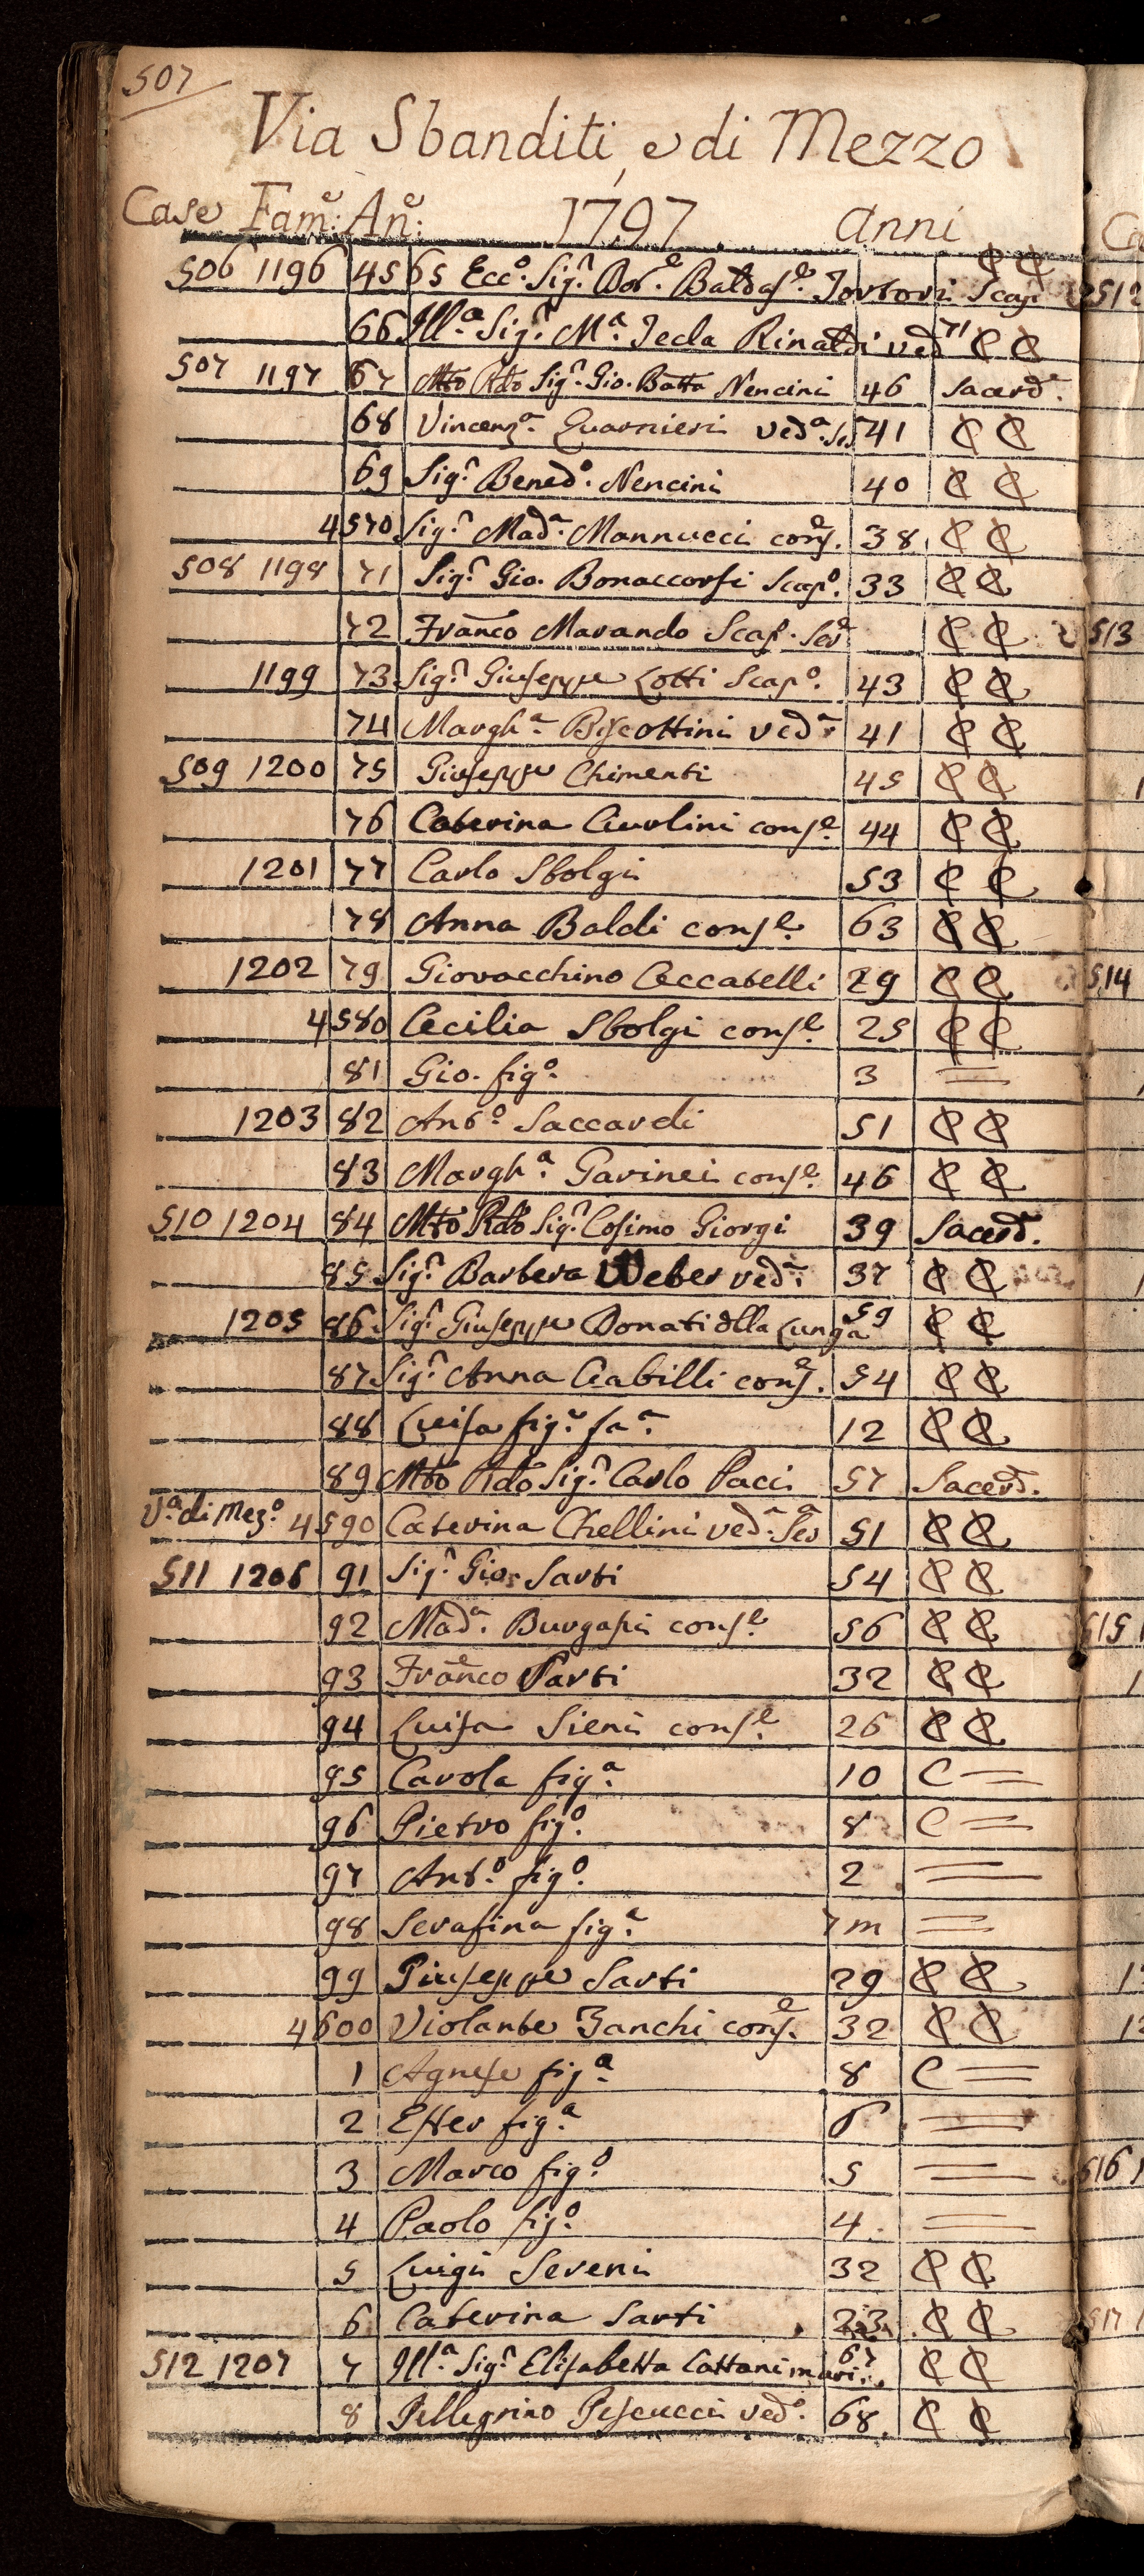 507
Via Sbanditi, e di Mezzo
Case Fam.e An.e 1797 anni
506 1196 4565 Ecc.o Sig.r Dot.e Baldas.e Tortori Scap. C C
66 Ill.a Sig.r M.a Tecla Rinaldi ved 71 C C
507 1197 67 Mto Rdo Sig.r Gio. Batta Nencini 46 Sacerd.e
68 Vincenz.a Guarnieri ved.a Ser 41 C C
69 Sig.r Bened.o Nencini 40 C C
4570 Sig.r Mad.a Mannucci cons.e 38 C C
508 1198 71 Sig.r Gio. Bonaccorsi Scap.o 33 C C
72 Franco Marando Scap. Ser.e C C
1199 73 Sig.r Giuseppe Lotti Scap.o 43 C C
74 Margh.a Biscottini ved.a 41 C C
509 1200 75 Giuseppe Chimenti 45 C C
76 Caterina Ciurlini cons.e 44 C C
1201 77 Carlo Sbolgi 53 C C
78 Anna Baldi cons.e 63 C C
1202 79 Giovacchino Ceccatelli 29 C C
4580 Cecilia Sbolgi cons.e 25 C C
81 Gio. fig.o 3 =
1203 82 Ant.o Saccardi 51 C C
83 Margh.a Gavinei cons.e 46 C C
510 1204 84 Mto Rdo Sig.r Cosimo Giorgi 39 Sacerd.
85 Sig.r Barbera Weber ved.a 37 C C
1205 86 Sig.r Giuseppe Donati dlla Lunga 59 C C
87 Sig.r Anna Ciabilli cons.e 54 C C
88 Luisa fig.a fa.a 12 C C
89 Mto Rdo Sig.r Carlo Paci 57 Sacerd.
V.a di Mez.o 4590 Caterina Chellini ved.a Ser.a 51 C C
511 1206 91 Sig.r Gio: Sarti 54 C C
92 Mad.a Burgassi cons.e 56 C C
93 Franco Sarti 32 C C
94 Luisa Sieni cons.e 26 C C
95 Carola fig.a 10 C =
96 Pietro fig.o 8 C =
97 Ant.o fig.o 2 =
98 Serafina fig.a 7 m =
99 Giuseppe Sarti 29 C C
4600 Violante Zanchi cons.e 32 C C
1 Agnese fig.a 8 C =
2 Ester fig.a 6 =
3 Marco fig.o 5 =
4 Paolo fig.o 4 =
5 Luigi Severi 32 C C
6 Caterina Sarti 23 C C
512 1207 7 Ill.a Sig.r Elisabetta Cattani mari: 67 C C
8 Pellegrino Pescucci ved.o 68 C C
513
514
515
516
517